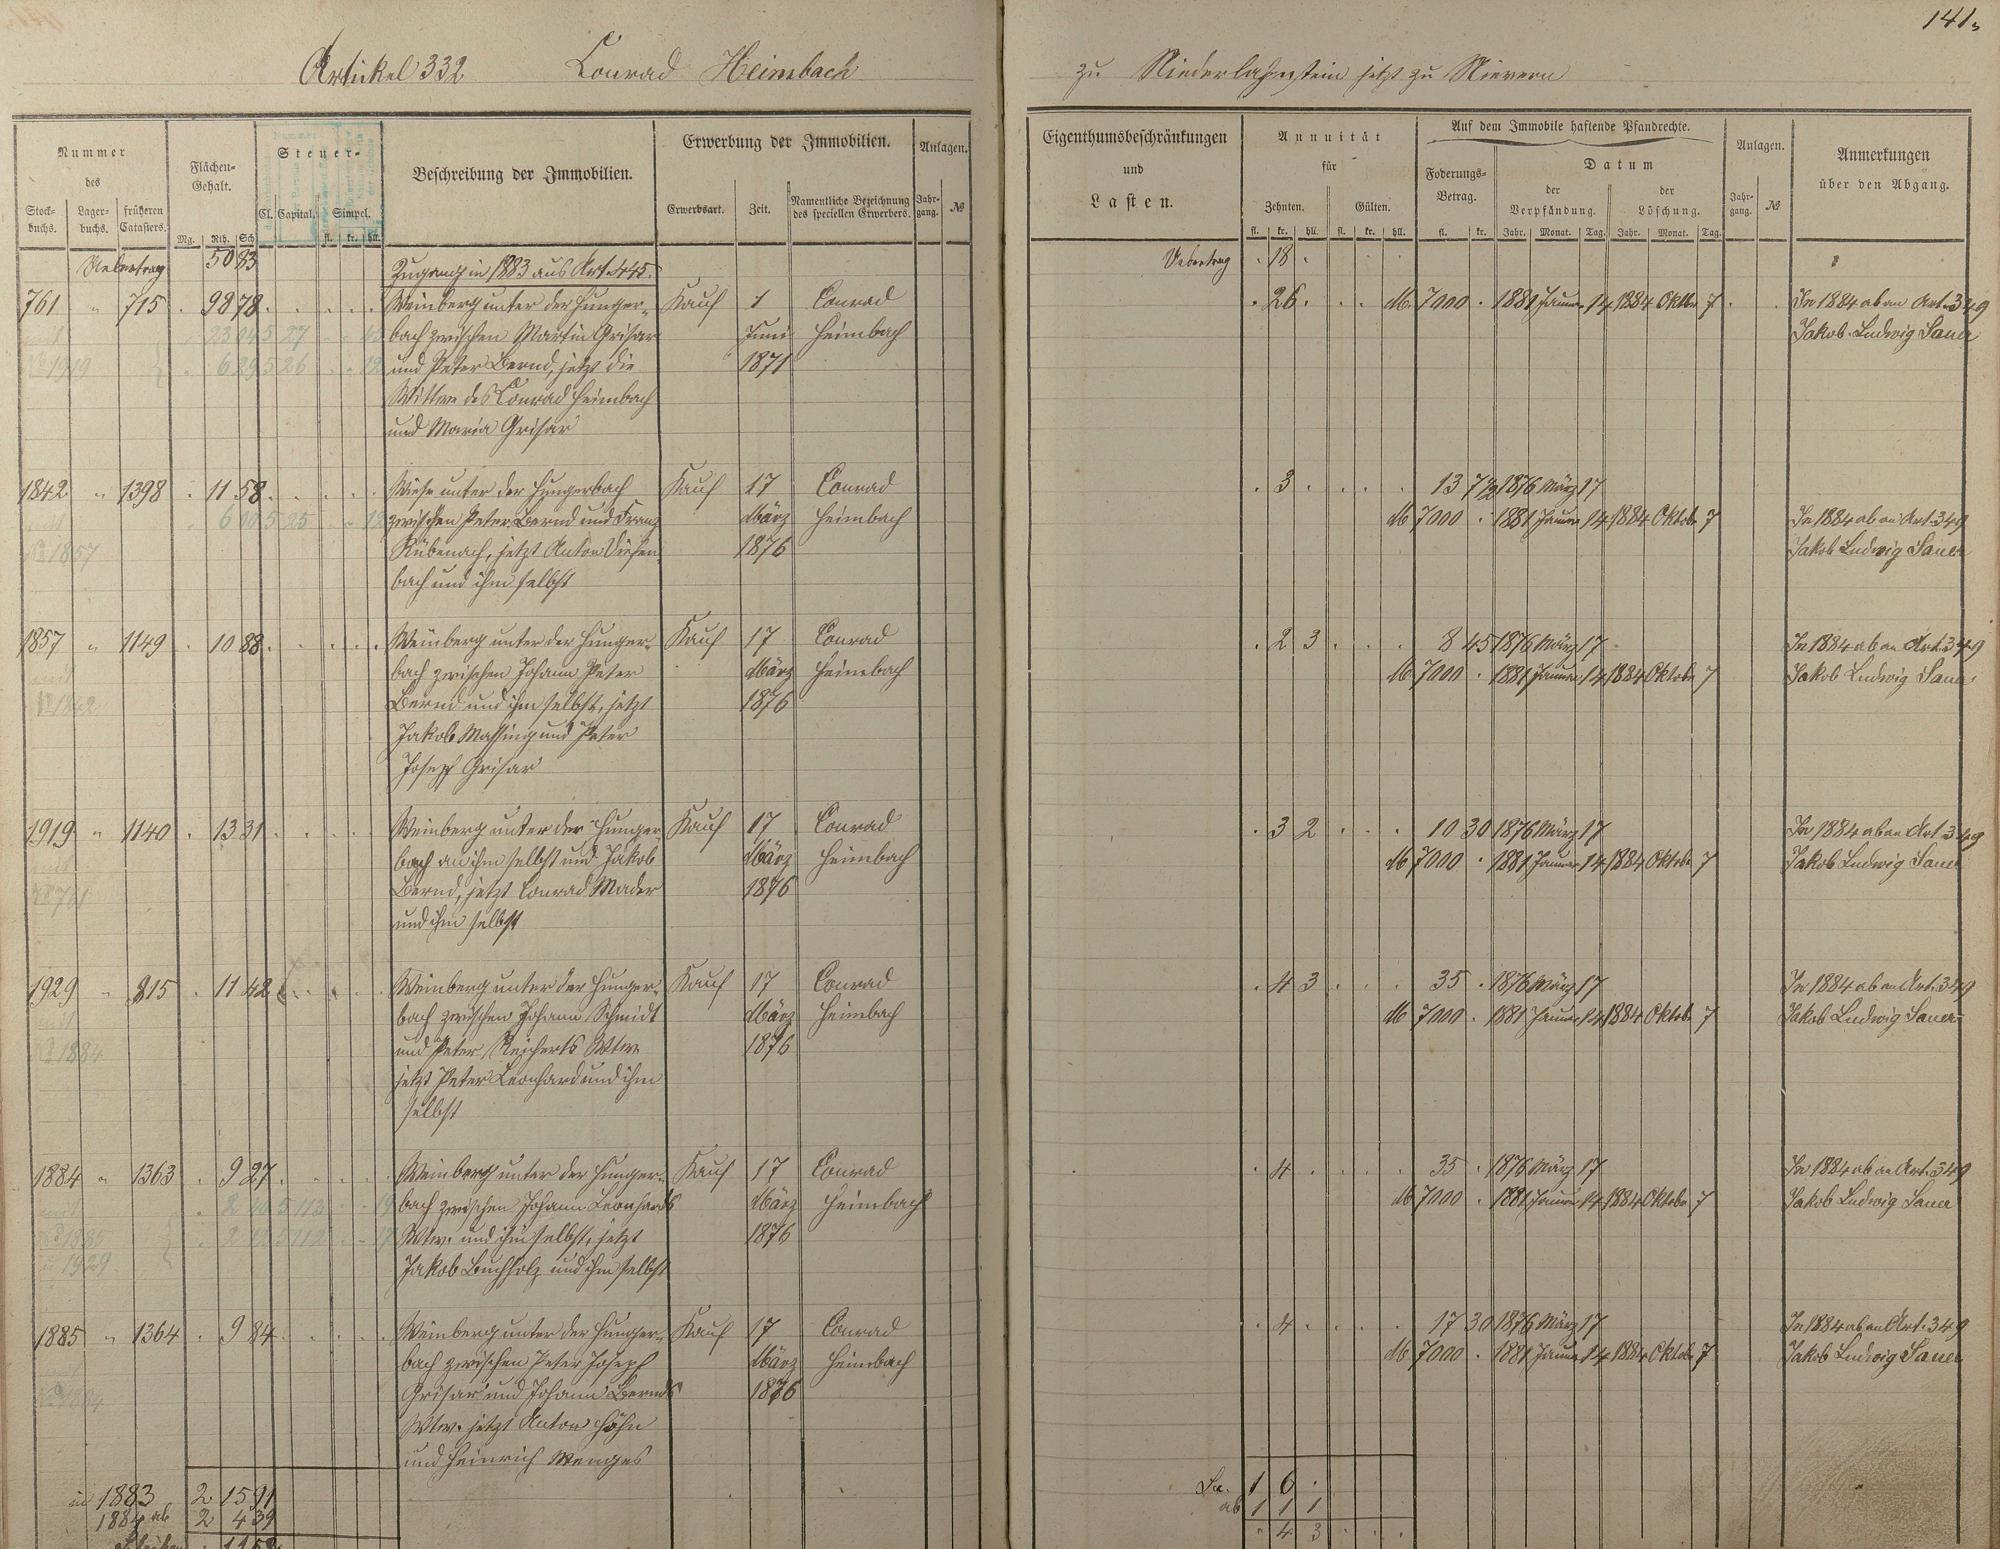 141.
Artickel 332 Conrad Heimbach
zu Niederlahnstein jetzt zu Nievern
Nummer des
Stockbuchs. Lagerbuchs. früheren Catasters.
Flächen-Gehalt.
Mg. Rth. Sch
Steuer-
Cl. Capital. Simpel.
fl. kr. hll.
Beschreibung der Immobilien.
Erwerbung der Immobilien.
Erwerbsart. Zeit. Namentliche Bezeichnung des speciellen Erwerbers.
Anlagen.
Jahrgang. №
Eigenthumsbeschränkungen
und
Lasten.
Annuität
für
Zehnten. Gülten.
fl. kr. hll. fl. kr. hll.
Auf dem Immobile haftende Pfandrechte.
Foderungs-Betrag.
fl. kr.
Datum
der Verpfändung. der Löschung.
Jahr. Monat. Tag. Jahr. Monat. Tag.
Anlagen.
Jahrgang. №
Anmerkungen
über den Abgang.
Uebertrag 50 83
Zugang in 1883 aus Art. 445.
Uebertrag 18
761 " 715 98 78 Weinberg unter der Hunger- Kauf 1 Conrad
bach zwischen Martin Grisar Juni Heimbach
und Peter Bernd, jetzt die 1871
Wittwe des Conrad Heimbach
und Maria Grisar
26 M 7000 1881 Januar 14 1884 Oktbr 7 In 1884 ab an Art. 349
Jakob Ludwig Sauer
1842 " 1398 11 58 Wiese unter der Hungerbach Kauf 17 Conrad
zwischen Peter Bernd und Franz März Heimbach
Rübenach, jetzt Anton Diefen- 1876
bach und ihm selbst
3 13 7½ 1876 März 17
M 7000 1881 Januar 14 1884 Oktober 7 In 1884 ab an Art. 349
Jakob Ludwig Sauer
1857 " 1149 10 88 Weinberg unter der Hunger- Kauf 17 Conrad
bach zwischen Johann Peter März Heimbach
Bernd und ihm selbst, jetzt 1876
Jakob Massing und Peter
Joseph Grisar
2 3 8 45 1876 März 17 In 1884 ab an Art. 349
M 7000 1881 Januar 14 1884 Oktober 7 Jakob Ludwig Sauer
1919 " 1140 13 31 Weinberg unter der Hunger- Kauf 17 Conrad
bach an ihm selbst und Jakob März Heimbach
Bernd, jetzt Conrad Mader 1876
und ihm selbst
3 2 10 30 1876 März 17 In 1884 ab an Art 349
M 7000 1881 Januar 14 1884 Oktober 7 Jakob Ludwig Sauer
1929 " 815 11 42 Weinberg unter der Hunger- Kauf 17 Conrad
bach zwischen Johann Schmidt März Heimbach
und Peter Reicherts Wtw. 1876
jetzt Peter Leonhard und ihm
selbst
4 3 35 1876 März 17 In 1884 ab an Art. 349
M 7000 1881 Januar 14 1884 Oktober 7 Jakob Ludwig Sauer
1884 " 1363 9 27 Weinberg unter der Hunger- Kauf 17 Conrad
bach zwischen Johann Leonhards März Heimbach
Wtw. und ihm selbst, jetzt 1876
Jakob Buchholz und ihm selbst
4 35 1876 März 17 In 1884 ab an Art. 349
M 7000 1881 Januar 14 1884 Oktober 7 Jakob Ludwig Sauer
1885 " 1364 9 84 Weinberg unter der Hunger- Kauf 17 Conrad
bach zwischen Peter Joseph März Heimbach
Grisar und Johann Bernds 1876
Wtw. jetzt Anton Höhn
und Heinrich Menges
4 17 30 1876 März 17 In 1884 ab an Art. 349
M 7000 1881 Januar 14 1884 Oktober 7 Jakob Ludwig Sauer
in 1883 2 15 91
1884 ab 2 4 39
Sa. 1 6
ab 1 1 1
4 3